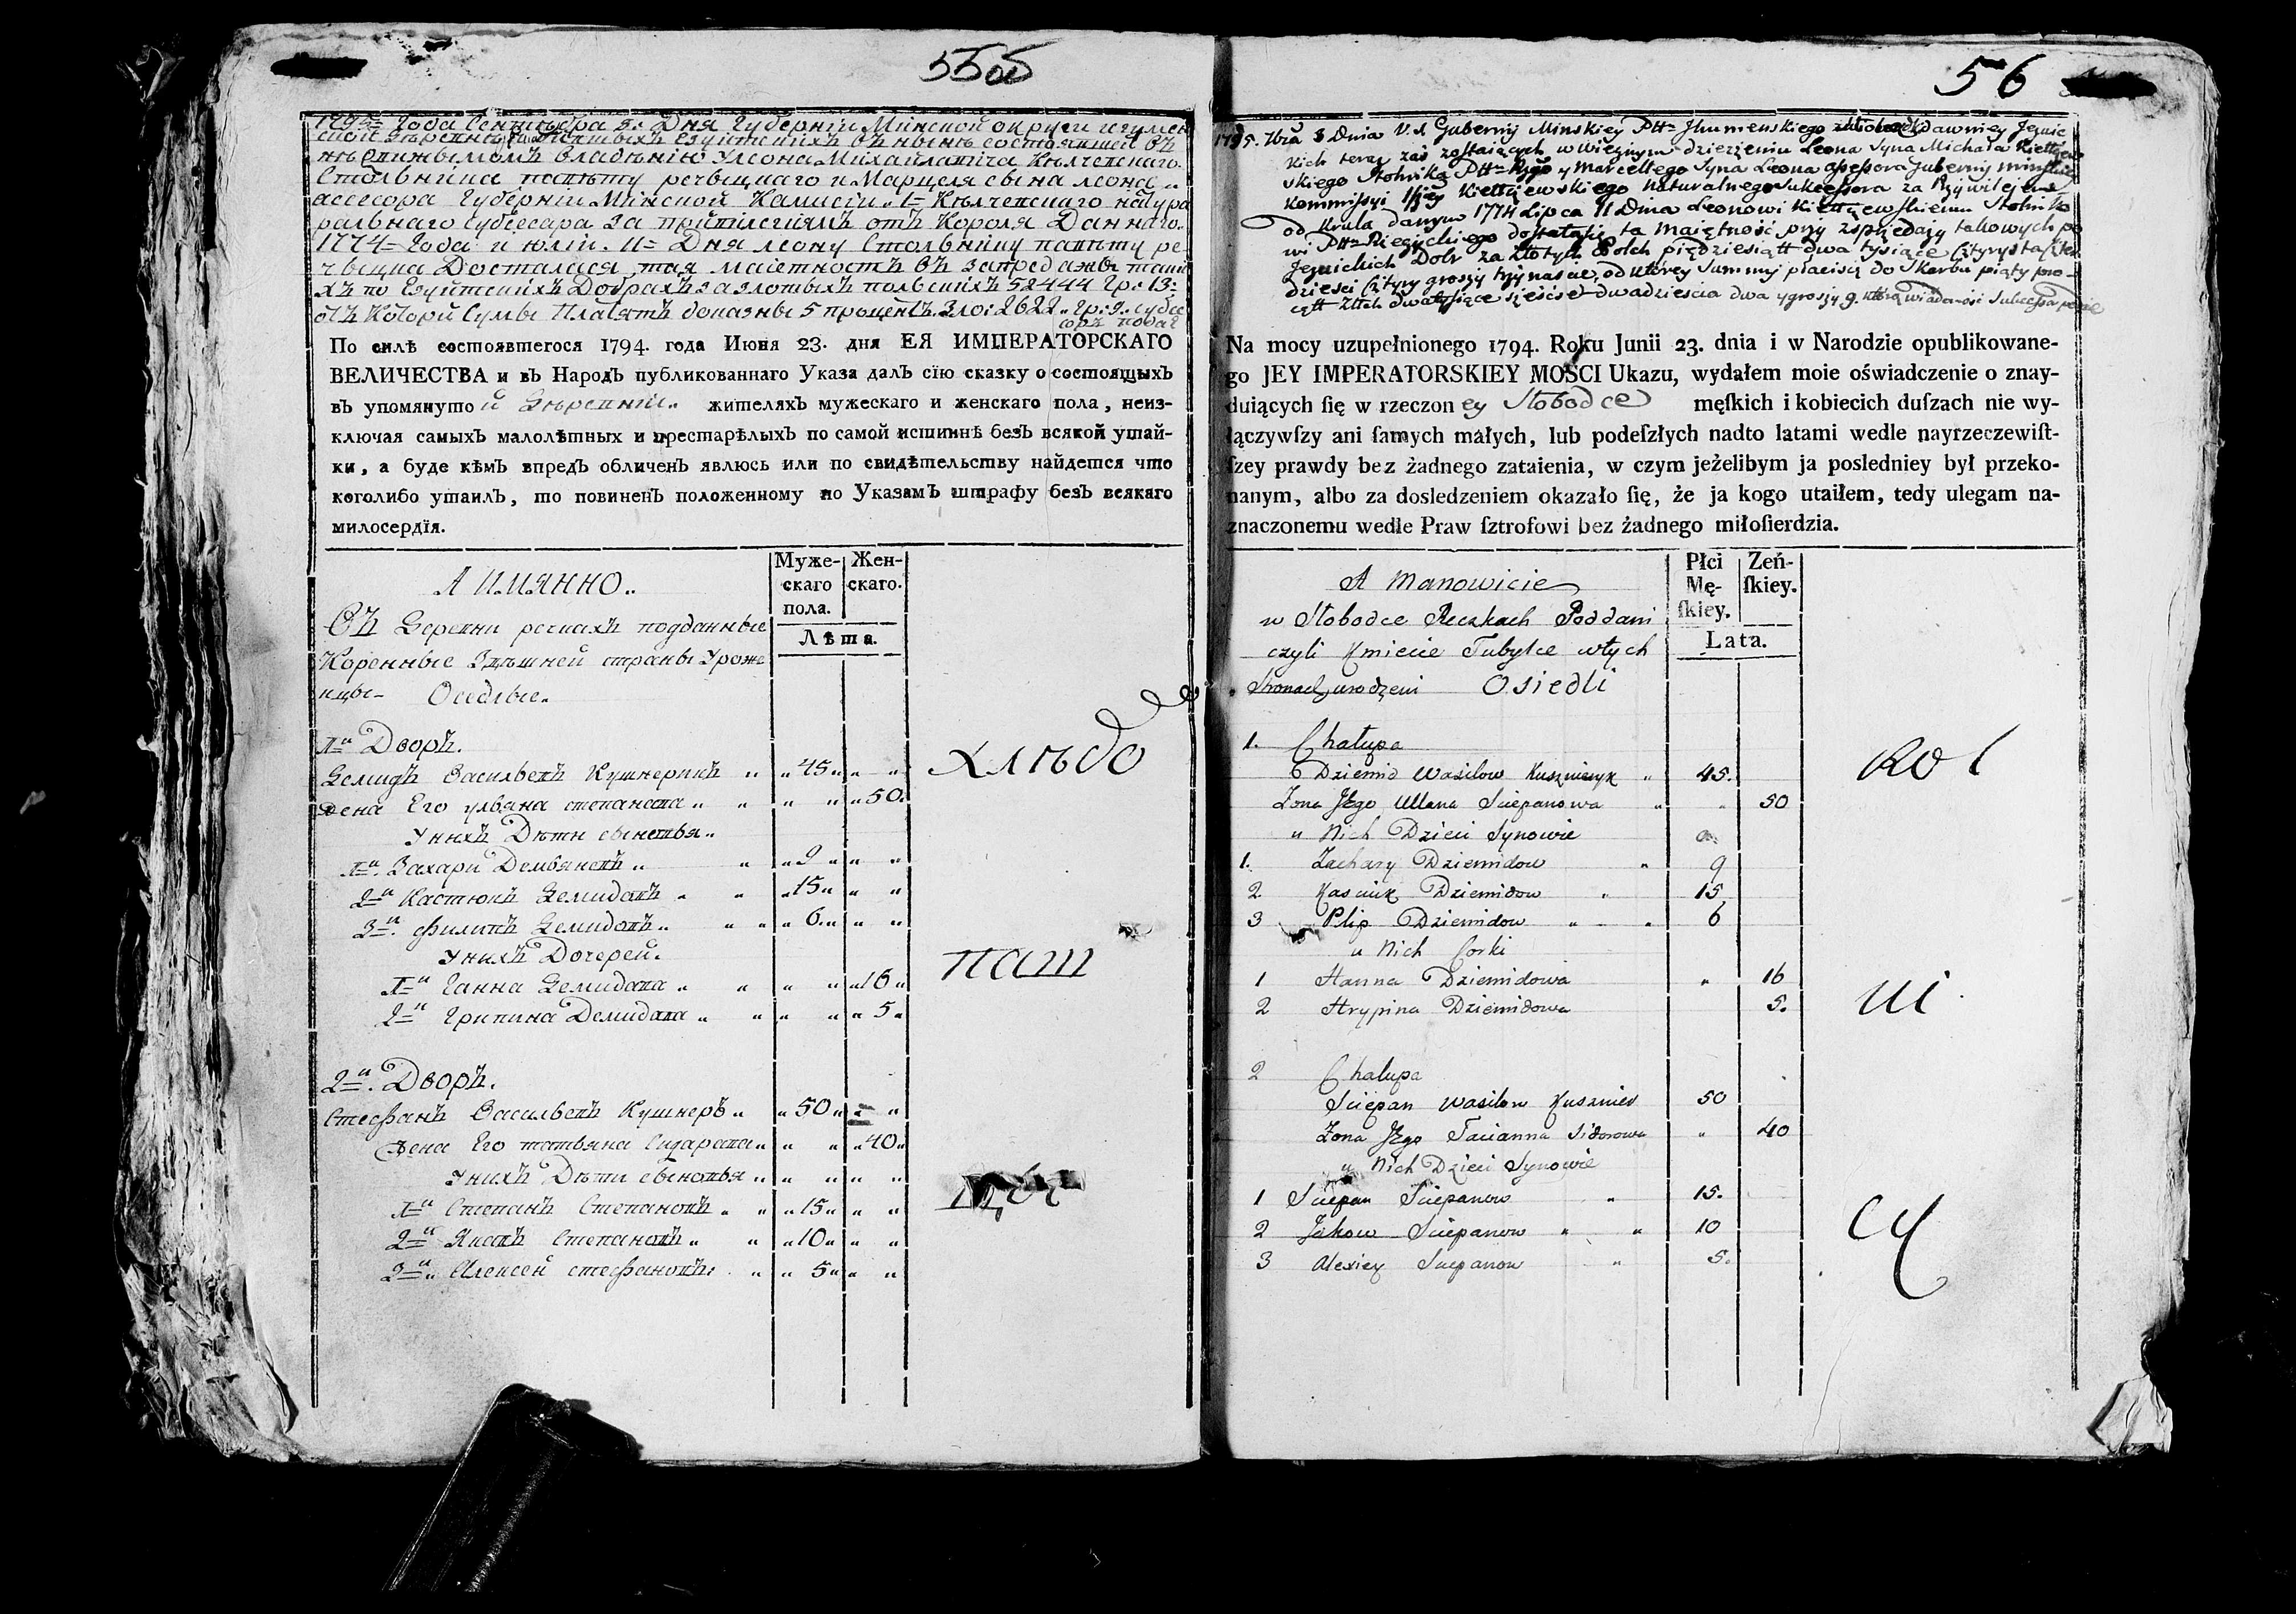 55об
1795 Года Сентебра 3: Дня Губерніи Минской округи игумен
ской
владѣнію Улеона Михайлавича Кѣлчевскаго
Столника павѣту речыцкаго и Марцеля сына леона
асесора Губерніи Минской Камисіи Кѣлчевскаго натура
ральнаго сукцесара за привилегіямъ отъ Короля Даннаго
1774 Года и юліи 11 Дня леону Столнику павѣту ре
чыцка Досталася тая маіетность въ запредажы таки
хъ по Езуитскихъ Добрахъ за злотыхъ польскихъ 52444 гр: 13:
отъ Которй Сумы Платятъ доказны 5 процентъ Зло: 2622 гр: 9 сукце
соръ
По силѣ состоявшегося 1794. года Июня 23. дня ЕЯ ИМПЕРАТОРСКАГО
ВЕЛИЧЕСТВА и въ Народъ публикованнаго Указа далъ сію сказку о состоящыхъ
въ упомянутой Деревни жителяхъ мужескаго и женскаго пола, неиз-
ключая самыхъ малолѣтныхъ и престарѣлыхъ по самой истиннѣ безъ всякой утай-
ки, а буде кѣмъ впредъ обличенъ явлюсь или по свидѣтельству найдется что
коголибо утаилъ, то повиненъ положенному по Указамъ штрафу безъ всякаго
милосердія.
А ИМЯННО
Муже-
скаго
пола.
Жен-
скаго.
Лѣта.
Въ Деревни речкахъ подданные
Коренные Здѣшней страны Уроже
нцы Оседлые
1й Дворъ.
Демидъ Васильевъ Кушнерикъ 45
Жена Его ульяна степанова 50
У нихъ Дѣти сыновья
1й Захари Демьяновъ 9
2й Кастюкъ Демидовъ 15
3й филипъ Демидовъ 6
У нихъ Дочерей
1й Ганна Демидова 16
2й Грипина Демидова 5
2й Дворъ.
Стефанъ Васильевъ Кушнеръ 50
Жена Его татьяна Сидарова 40
У нихъ Дѣти сыновья
1й Степанъ Степановъ 15
2й Яковъ Степановъ 10
3й Алексей стефановъ 5
хлѣбо
паш
цы
56
1795. 7bra 3 Dnia V.S. Gubernij Minskiey Ptt Jhumenskiego dawniey Jezuic
kich teraz zaś zostaiących w wiecznym dzierżeniu Leona Syna Michała Kiełczew
skiego Stolnika Ptt Rzgo y Marcellego Syna Leona Assessora Gubernij Minskiey
Kommissyi Kiełczewskiego Naturalnego Sukcessora za Przywilejem
od Krula danym 1774 Lipca 11 Dnia Leonowi Kiełczewskiemu Stolniko
wi Ptt Rzeczyckiego dostałasię ta maiętność przy zsprzedaży takowych po
Jezuickich Dobr za złotych Polch piędziesiątt dwa tysiące cztyrysta czter
dziesci cztyry groszy trzynascie, od ktorey Summy płacisię do Skarbu piąty pro-
cętt Złtch dwa tysiące sześćset dwadziescia dwa y groszy 9. Sukcessor
Na mocy uzupełnionego 1794. Roku Junii 23. dnia i w Narodzie opublikowane-
go JEY IMPERATORSKIEY MOSCI Ukazu, wydałem moie oświadczenie o znay-
duiących ſię w rzeczoney Słobodce męſkich i kobiecich duſzach nie wy-
łączywſzy ani ſamych małych, lub podeſzłych nadto latami wedle nayrzeczewiſt-
ſzey prawdy bez żadnego zataienia, w czym jeżelibym ja posledniey był przeko-
nanym, albo za dosledzeniem okazało ſię, że ja kogo utaiłem, tedy ulegam na-
znaczonemu wedle Praw ſztrofowi bez żadnego miłoſierdzia.
A Manowicie
Płci
Mę-
ſkiey.
Zeń-
ſkiey.
Lata.
w Słobodce Reczkach Poddani
czyli Kmiecie Tubylce wtych
Stronach urodzeni Osiedli
1. Chałupa
Dziemid Wasilow Kusznieryk 45.
Zona Jego Ullana Sciepanowa 50
u Nich Dzieci Synowie
1. Zachary Dziemidow 9
2. Kasciuk Dziemidow 15
3 Plip Dziemidow 6
u Nich Corki
1 Hanna Dziemidowa 16
2 Hrypina Dziemidowa 5.
2 Chałupa
Sciepan Wasilow Kusznier 50
Zona Jego Tacianna Sidorowa 40
u Nich Dzieci Synowie
1 Sciepan Sciepanow 15.
2 Jakow Sciepanow 10
3 Alexiey Sciepanow 5.
Rol
ni
cy